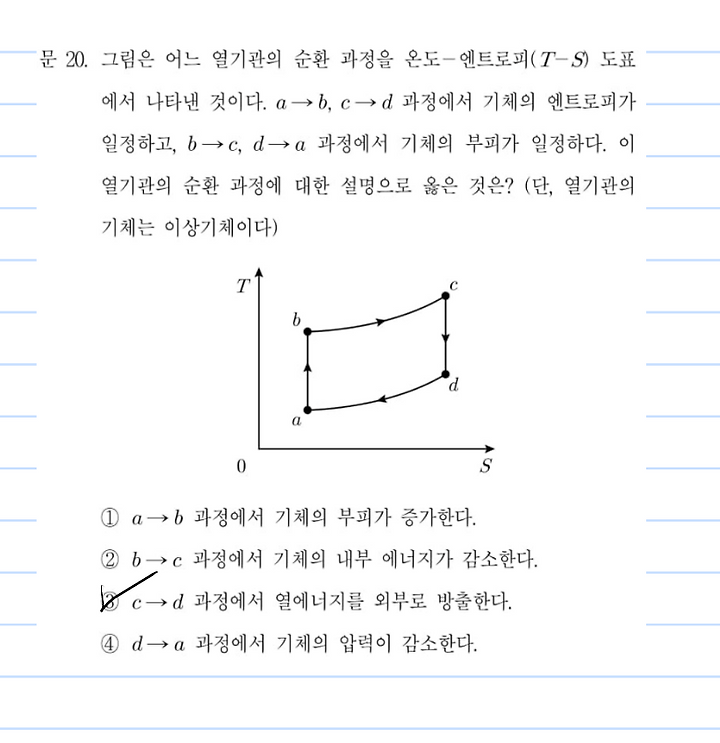 문 20. 그림은 어느 열기관의 순환 과정을 온도-엔트로피(T-S) 도표
에서 나타낸 것이다. a→b, c→d 과정에서 기체의 엔트로피가
일정하고, b→c, d→a 과정에서 기체의 부피가 일정하다. 이
열기관의 순환 과정에 대한 설명으로 옳은 것은? (단, 열기관의
기체는 이상기체이다)
T
c
b
d
a
0
S
① a→b 과정에서 기체의 부피가 증가한다.
② b→c 과정에서 기체의 내부 에너지가 감소한다.
③ c→d 과정에서 열에너지를 외부로 방출한다.
④ d→a 과정에서 기체의 압력이 감소한다.